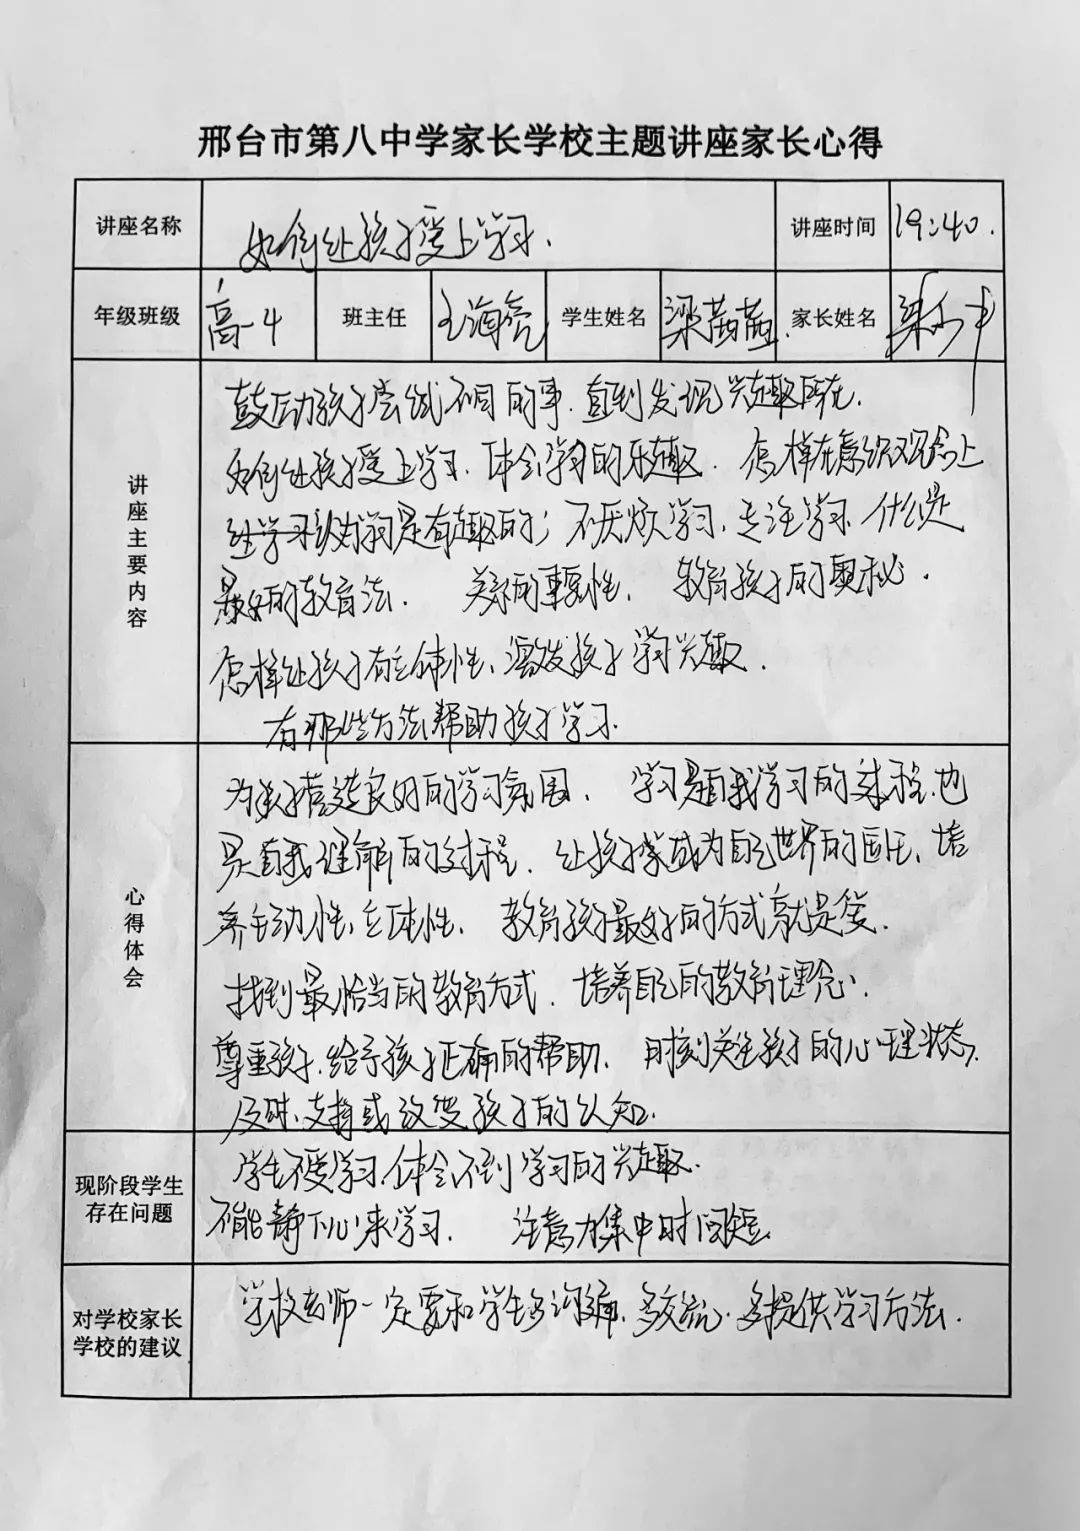 邢台市第八中学家长学校主题讲座家长心得
讲座名称 如何让孩子爱上学习. 讲座时间 19:40.
年级班级 高一4 班主任 王海亮 学生姓名 梁茜茜 家长姓名 梁
讲座主要内容
鼓励孩子尝试不同的事.直到发现兴趣所在.
如何让孩子爱上学习.体会学习的乐趣. 怎样在意识观念上
让学习认为学习是有趣的;不厌烦学习.专注学习.什么是
最好的教育法. 关系的重要性. 教育孩子的奥秘.
怎样让孩子有主体性、激发孩子学习兴趣.
有那些方法帮助孩子学习.
心得体会
为孩子营造良好的学习氛围. 学习是自我学习的过程.也
是自我理解的过程. 让孩子掌成为自己世界的国王.培
养主动性、主体性. 教育孩子最好的方式就是爱.
找到最恰当的教育方式. 培养自己的教育理念.
尊重孩子.给予孩子正确的帮助. 时刻关注孩子的心理状态.
及时、支持或改变孩子的认知.
现阶段学生
存在问题
学生不爱学习.体会不到学习的兴趣.
不能静下心来学习. 注意力集中时间短.
对学校家长
学校的建议
学校老师一定要和学生多沟通.多交流.多提供学习方法.